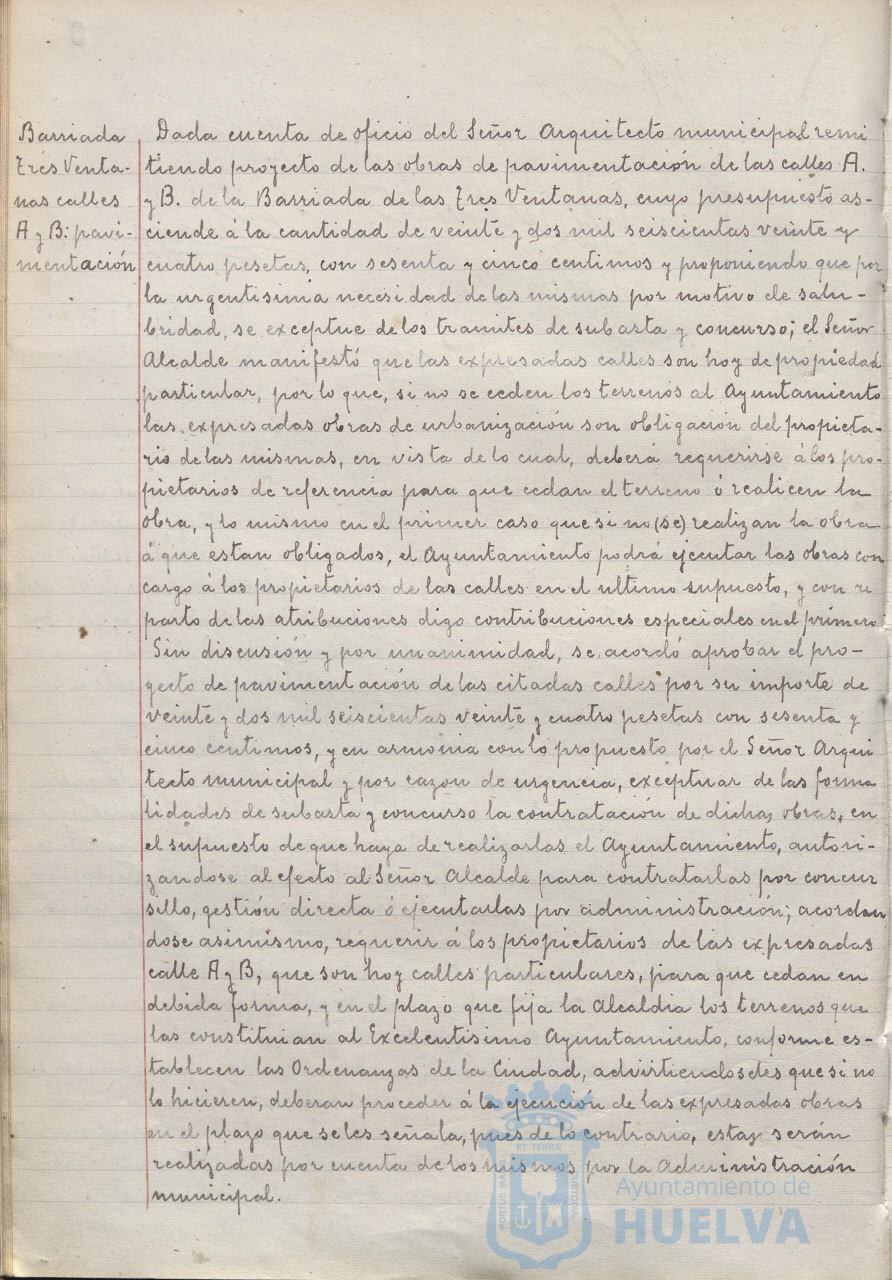 Barriada
Tres Venta-
nas calles
A y B: pavi-
mentación
Dada cuenta de oficio del Señor Arquitecto municipal remi
tiendo proyecto de las obras de pavimentación de las calles A.
y B. de la Barriada de las Tres Ventanas, cuyo presupuesto as-
ciende á la cantidad de veinte y dos mil seiscientas veinte y
cuatro pesetas, con sesenta y cinco centimos y proponiendo que por
la urgentisima necesidad de las mismas por motivo de salu-
bridad, se exceptue de los tramites de subasta y concurso; el Señor
Alcalde manifestó que las expresadas calles son hoy de propiedad
particular, por lo que, si no se ceden los terrenos al Ayuntamiento
las expresadas obras de urbanización son obligación del propieta-
rio de las mismas, en vista de lo cual, deberá requerirse á los pro-
pietarios de referencia para que cedan el terreno ó realicen la
obra, y lo mismo en el primer caso que si no (se) realizan la obra
á que estan obligados, el Ayuntamiento podrá ejecutar las obras con
cargo á los propietarios de las calles en el ultimo supuesto, y con re
parto de las atribuciones digo contribuciones especiales en el primero
Sin discusión y por unanimidad, se acordó aprobar el pro-
yecto de pavimentación de las citadas calles por su importe de
veinte y dos mil seiscientas veinte y cuatro pesetas con sesenta y
cinco centimos, y en armonia con lo propuesto por el Señor Arqui
tecto municipal y por razon de urgencia, exceptuar de las forma
lidades de subasta y concurso la contratación de dichas obras, en
el supuesto de que haya de realizarlas el Ayuntamiento, autori-
zandose al efecto al Señor Alcalde para contratarlas por concur
sillo, gestión directa ó ejecutarlas por administración; acordan
dose asimismo, requerir á los propietarios de las expresadas
calle A y B, que son hoy calles particulares, para que cedan en
debida forma, y en el plazo que fija la Alcaldia los terrenos que
las constituian al Excelentisimo Ayuntamiento, conforme es-
tablecen las Ordenanzas de la Ciudad, advirtiendoseles que si no
lo hicieren, deberan proceder á la ejecución de las expresadas obras
en el plazo que se les señala, pues de lo contrario, estas serán
realizadas por cuenta de los mismos por la Administración
municipal.
PORTUS MARIS
ET TERRA
CUSTODIA
Ayuntamiento de
HUELVA